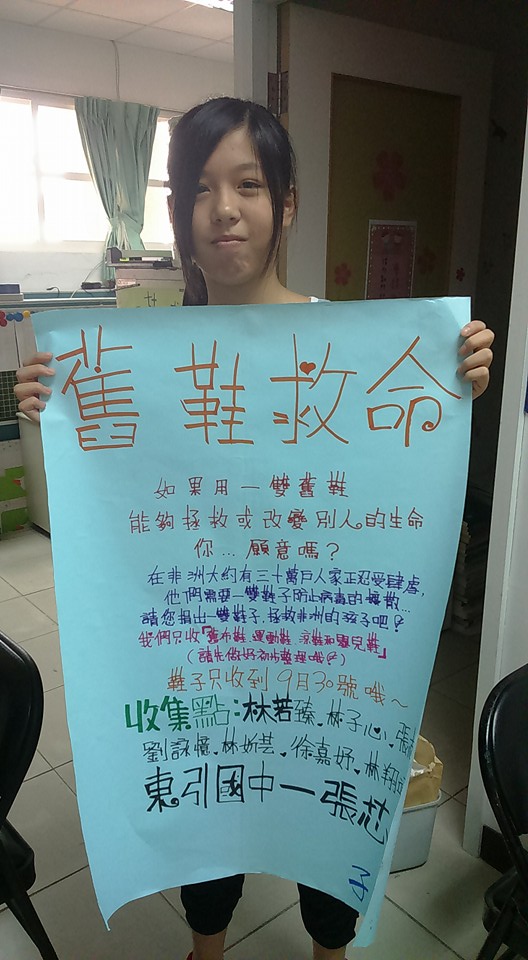 舊鞋救命
如果用一雙舊鞋
能夠拯救或改變別人的生命
你...願意嗎？
在非洲大約有三十萬戶人家正忍受肆虐，
他們需要一雙鞋子防止病毒的擴散...
請您捐出一雙鞋子，拯救非洲的孩子吧！
我們只收「舊布鞋、運動鞋、涼鞋和嬰兒鞋」
（請先做好初步整理哦！）
鞋子只收到9月30號哦～
收集點：林若臻、林子心、張
劉詠憶、林妡芸、徐嘉妤、林翔
東引國中一張芯
子